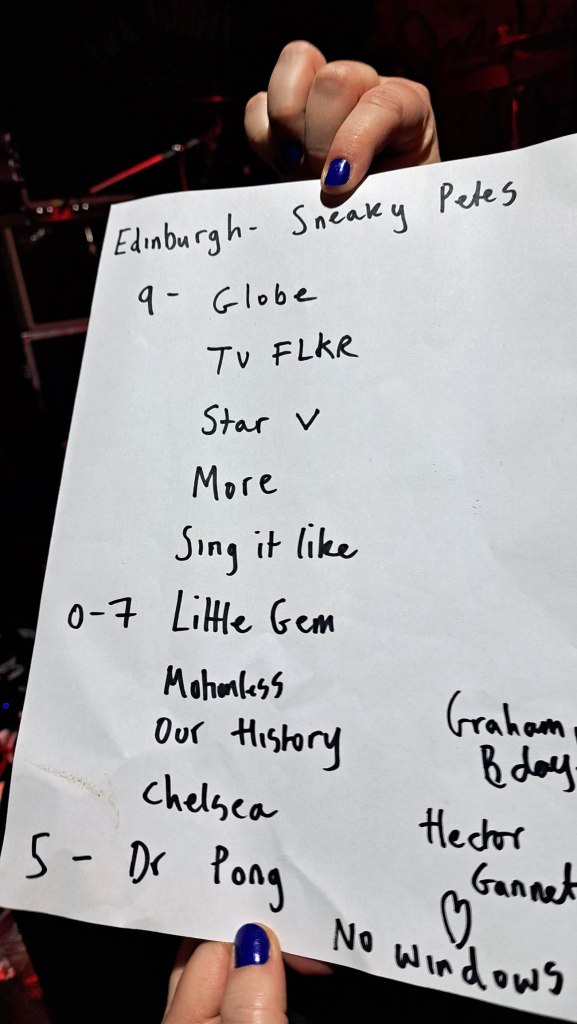 Edinburgh - Sneaky Petes
9 - Globe
TV FLKR
Star V
More
Sing it like
0-7 Little Gem
Motionless
Our History
Chelsea
5 - Dr Pong
Graham
B day
Hector
Gannet
No Windows